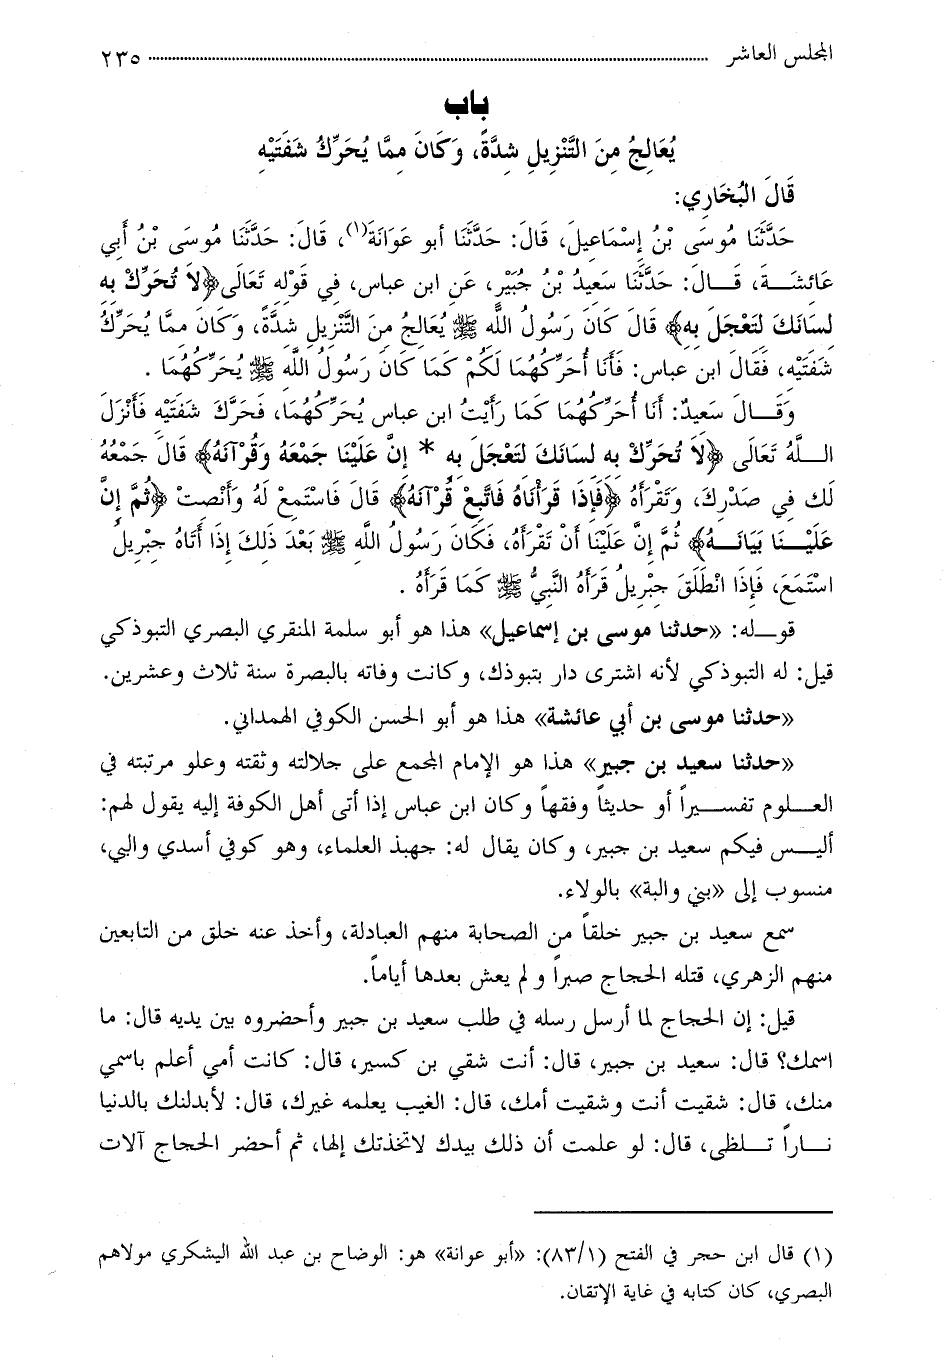 المجلس العاشر ........................................ ٢٣٥
باب
يُعَالِجُ مِنَ التَّنْزِيلِ شِدَّةً، وَكَانَ مِمَّا يُحَرِّكُ شَفَتَيْهِ
قَالَ الْبُخَارِي:
حَدَّثَنَا مُوسَى بْنُ إِسْمَاعِيلَ، قَالَ: حَدَّثَنَا أبو عَوَانَةَ(١)، قَالَ: حَدَّثَنَا مُوسَى بْنُ أَبِي
عَائِشَـــةَ، قَـــالَ: حَدَّثَنَا سَعِيدُ بْنُ جُبَيْرٍ، عَنِ ابن عباس، فِي قَوْلِهِ تَعَالَى ﴿لاَ تُحَرِّكْ بِهِ
لِسَانَكَ لِتَعْجَلَ بِهِ﴾ قَالَ كَانَ رَسُولُ اللَّهِ ﷺ يُعَالِجُ مِنَ التَّنْزِيلِ شِدَّةً، وَكَانَ مِمَّا يُحَرِّكُ
شَفَتَيْهِ، فَقَالَ ابن عباس: فَأَنَا أُحَرِّكُهُمَا لَكُمْ كَمَا كَانَ رَسُولُ اللَّهِ ﷺ يُحَرِّكُهُمَا .
وَقَـــالَ سَعِيدٌ: أَنَا أُحَرِّكُهُمَا كَمَا رَأَيْتُ ابن عباس يُحَرِّكُهُمَا، فَحَرَّكَ شَفَتَيْهِ فَأَنْزَلَ
اللَّـــهُ تَعَالَى ﴿لاَ تُحَرِّكْ بِهِ لِسَانَكَ لِتَعْجَلَ بِهِ * إِنَّ عَلَيْنَا جَمْعَهُ وَقُرْآنَهُ﴾ قَالَ جَمْعُهُ
لَكَ فِي صَدْرِكَ، وَتَقْرَأَهُ ﴿فَإِذَا قَرَأْنَاهُ فَاتَّبِعْ قُرْآنَهُ﴾ قَالَ فَاسْتَمِعْ لَهُ وَأَنْصِتْ ﴿ثُمَّ إِنَّ
عَلَيْـــنَا بَيَانَـــهُ﴾ ثُمَّ إِنَّ عَلَيْنَا أَنْ تَقْرَأَهُ، فَكَانَ رَسُولُ اللَّهِ ﷺ بَعْدَ ذَلِكَ إِذَا أَتَاهُ جِبْرِيلُ
اسْتَمَعَ، فَإِذَا انْطَلَقَ جِبْرِيلُ قَرَأَهُ النَّبِيُّ ﷺ كَمَا قَرَأَهُ .
قوـــله: «حدثنا موسى بن إسماعيل» هذا هو أبو سلمة المنقري البصري التبوذكي
قيل: له التبوذكي لأنه اشترى دار بتبوذك، وكانت وفاته بالبصرة سنة ثلاث وعشرين.
«حدثنا موسى بن أبي عائشة» هذا هو أبو الحسن الكوفي الهمداني.
«حدثنا سعيد بن جبير» هذا هو الإمام المجمع على جلالته وثقته وعلو مرتبته في
العـــلوم تفســـيراً أو حديثاً وفقهاً وكان ابن عباس إذا أتى أهل الكوفة إليه يقول لهم:
أليـــس فيكم سعيد بن جبير، وكان يقال له: جهبذ العلماء، وهو كوفي أسدي والبي،
منسوب إلى «بني والبة» بالولاء.
سمع سعيد بن جبير خلقاً من الصحابة منهم العبادلة، وأخذ عنه خلق من التابعين
منهم الزهري، قتله الحجاج صبراً ولم يعش بعدها أياماً.
قيل: إن الحجاج لما أرسل رسله في طلب سعيد بن جبير وأحضروه بين يديه قال: ما
اسمك؟ قال: سعيد بن جبير، قال: أنت شقي بن كسير، قال: كانت أمي أعلم باسمي
منك، قال: شقيت أنت وشقيت أمك، قال: الغيب يعلمه غيرك، قال: لأبدلنك بالدنيا
نـــاراً تـــلظى، قال: لو علمت أن ذلك بيدك لاتخذتك إلها، ثم أحضر الحجاج آلات
(١) قال ابن حجر في الفتح (٨٣/١): «أبو عوانة» هو: الوضاح بن عبد الله اليشكري مولاهم
البصري، كان كتابه في غاية الإتقان.